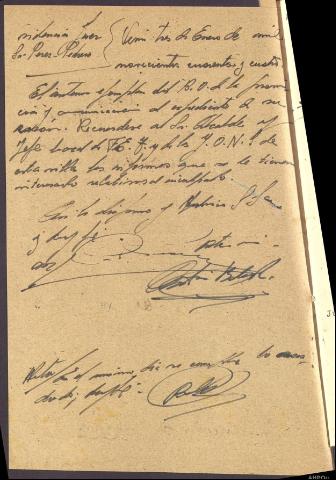 videncia Juez
Sr. Perez-Pedrero
Veintitres de Enero de mil
novecientos cuarenta y cuatro
El anterior ejemplar del B.O. de la provin
cia y comunicación al expediente de su
razón. Recuerdese al Sr. Alcalde y
Jefe Local de F.E.T. y de la J.O.N.S. de
esta villa los informes que se le tienen
interesados relativos al inculpado.
Así lo dispuso y S.S.
y doy fe.
Nota: En el mismo día se cumple lo acor-
dado, doy fe.
AHPOu